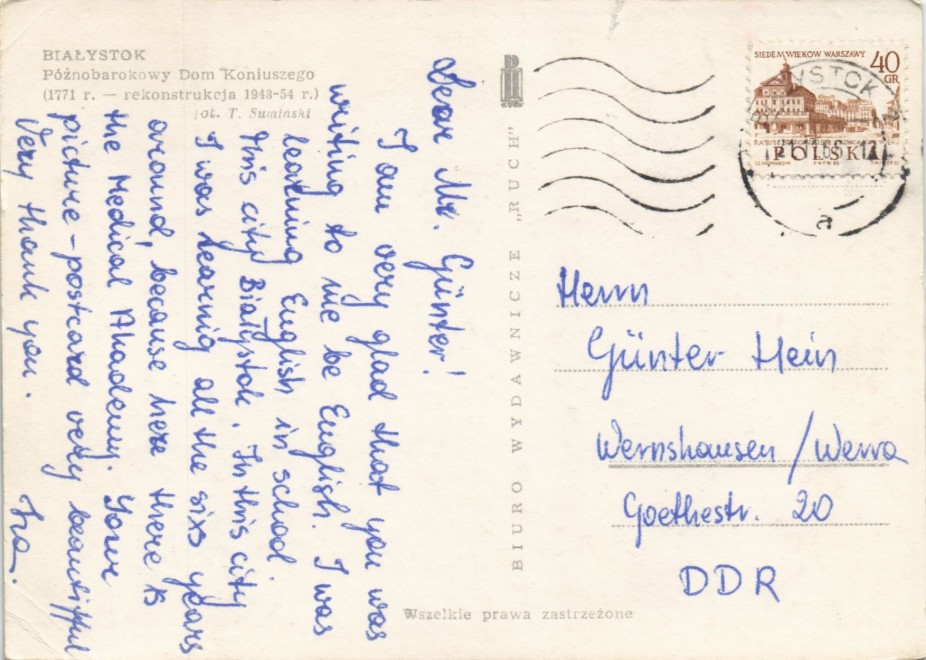 BIAŁYSTOK
Późnobarokowy Dom Koniuszego
(1771 r. — rekonstrukcja 1948-54 r.)
fot. T. Sumiński
Dear Mr. Günter!
I am very glad that you was
writing to me be English. I was
learning English in school.
This city Białystok. In this city
I was learnig all the sixs years
around, because here there is
the Medical Akademy. Your
picture-postcard very beautifful
Very thank you. Ira.
BIURO WYDAWNICZE „RUCH"
SIEDEM WIEKÓW WARSZAWY
40
GR
POLSKA
a
Herrn
Günter Hein
Wernshausen / Werra
Goethestr. 20
DDR
Wszelkie prawa zastrzeżone